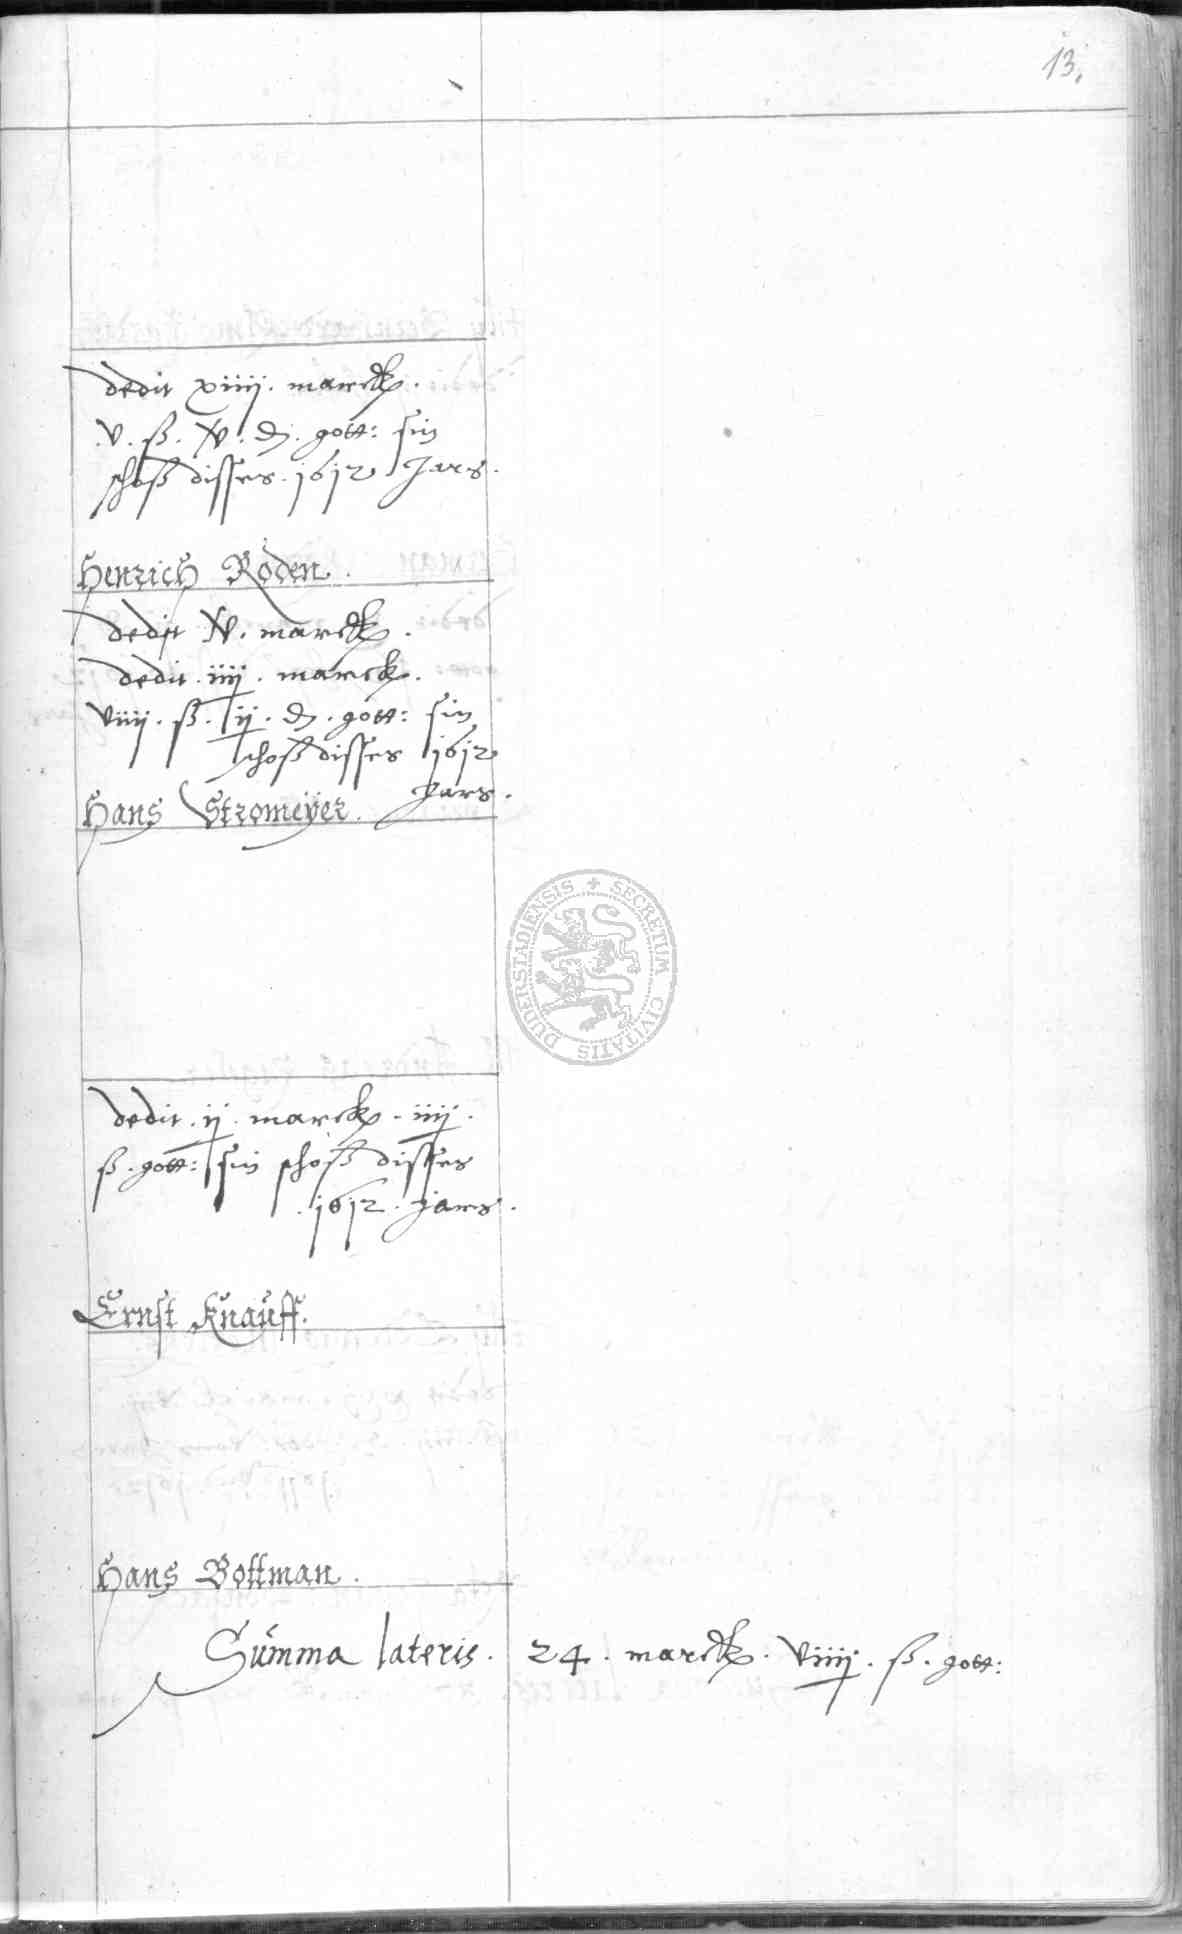 13.
dedit xiiij. marck.
v. ß. d. gott: sin
schoß disses. 1612 Jars.
Henrich Roden.
dedit marck.
dedit. iiij. marck.
viiij. ß. ij. d. gott: sin
schoß disses 1612
Jars.
Hans Stromeÿer.
DUDERSTADIENSIS + SECRETUM CIVITATIS
dedit. ij. marck. iiij.
ß. gott: sin schoß disses
. 1612. Jars.
Ernst Knauff.
Hans Bottman.
Summa lateris. 24. marck. viiij. ß. gott: